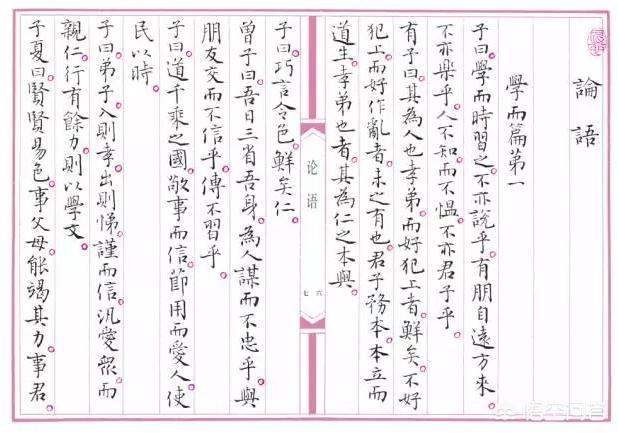 論語
學而篇第一
子曰學而時習之不亦說乎有朋自遠方來
不亦樂乎人不知而不慍不亦君子乎
有子曰其為人也孝弟而好犯上者鮮矣不好
犯上而好作亂者未之有也君子務本本立而
道生孝弟也者其為仁之本與
论语
六
七
子曰巧言令色鮮矣仁
曾子曰吾日三省吾身為人謀而不忠乎與
朋友交而不信乎傳不習乎
子曰道千乘之國敬事而信節用而愛人使
民以時
子曰弟子入則孝出則悌謹而信汎愛眾而
親仁行有餘力則以學文
子夏曰賢賢易色事父母能竭其力事君
悟空问答